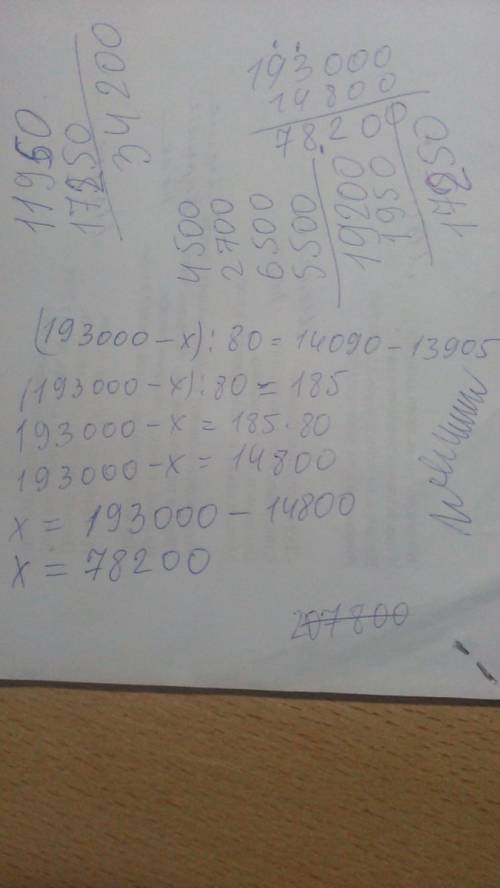 11950
17250
34 200
193000
14800
78.200
4500
2700
6500
5500
19200
1950
17250
(193000-x):80=14090-13905
(193000-x):80=185
193000-x=185·80
193000-x=14800
x=193000-14800
x=78200
207800